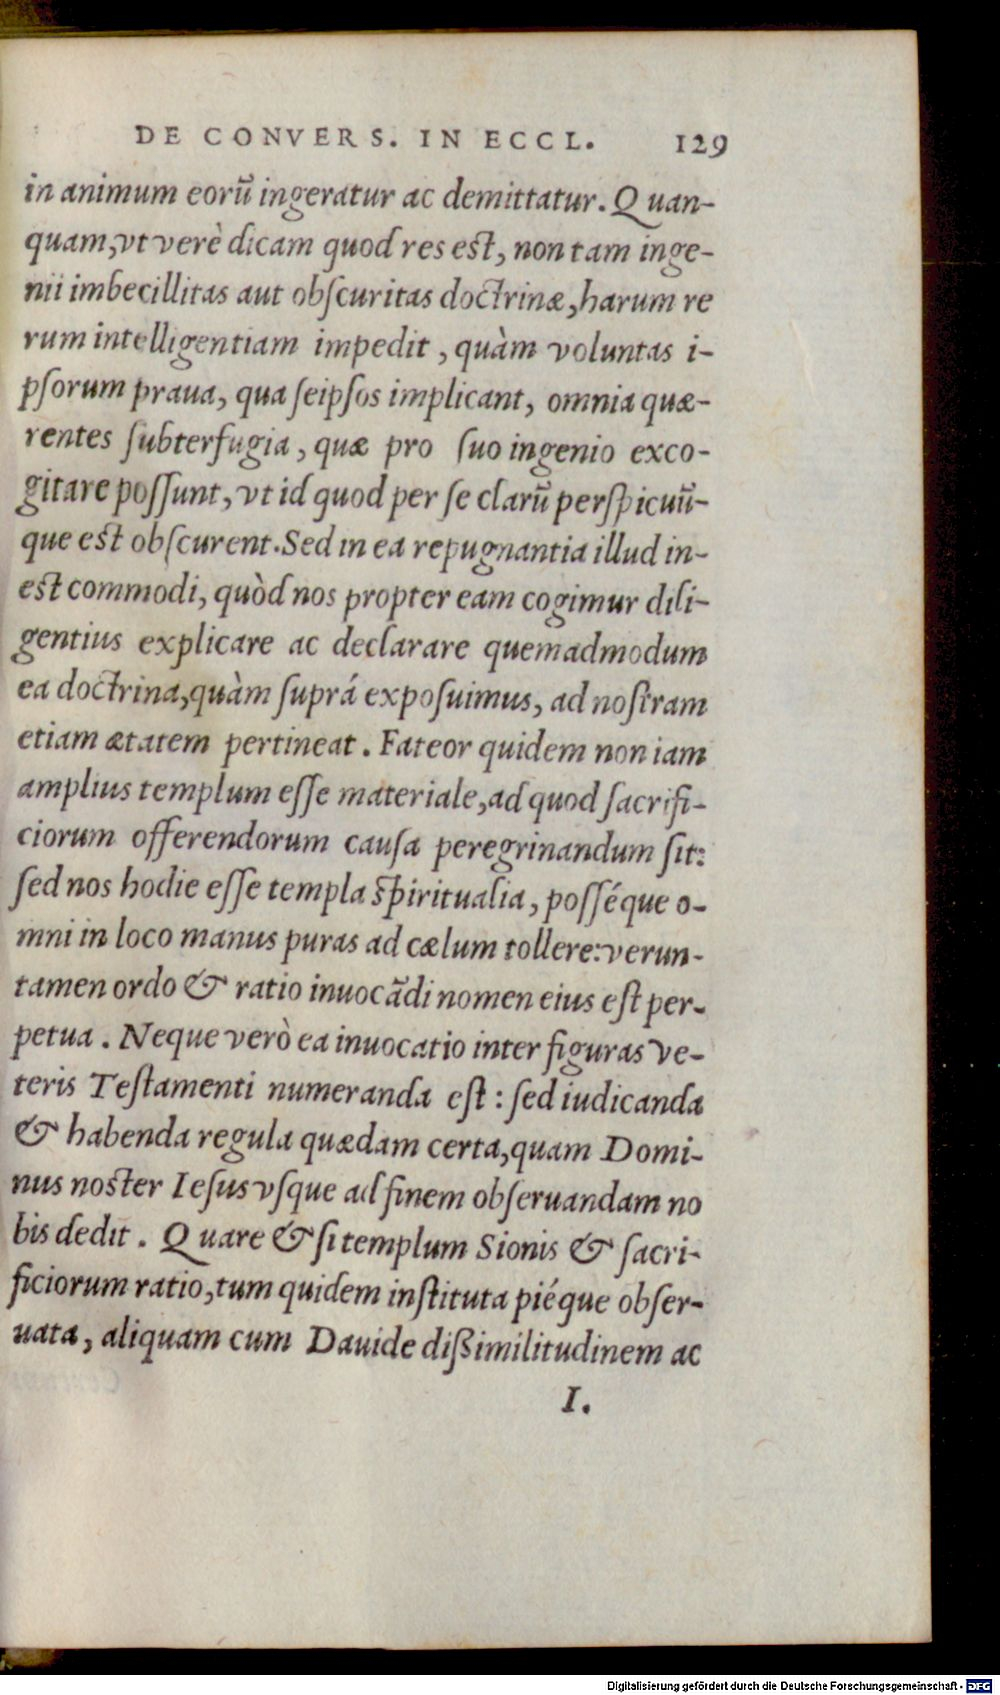 DE CONVERS. IN ECCL. 129
in animum eorũ ingeratur ac demittatur. Quan-
quam, vt verè dicam quod res est, non tam inge-
nii imbecillitas aut obſcuritas doctrinæ, harum re
rum intelligentiam impedit, quàm voluntas i-
pſorum praua, qua ſeipſos implicant, omnia quæ-
rentes ſubterfugia, quæ pro ſuo ingenio exco-
gitare poſſunt, vt id quod per ſe clarũ perſpicuũ-
que est obſcurent. Sed in ea repugnantia illud in-
est commodi, quòd nos propter eam cogimur dili-
gentius explicare ac declarare quemadmodum
ea doctrina, quàm ſuprá expoſuimus, ad noſtram
etiam ætatem pertineat. Fateor quidem non iam
amplius templum eſſe materiale, ad quod ſacrifi-
ciorum offerendorum cauſa peregrinandum ſit:
ſed nos hodie eſſe templa ſpiritualia, poſſéque o-
mni in loco manus puras ad cælum tollere: verun-
tamen ordo & ratio inuocãdi nomen eius eſt per-
petua. Neque verò ea inuocatio inter figuras ve-
teris Teſtamenti numeranda eſt: ſed iudicanda
& habenda regula quædam certa, quam Domi-
nus noster Ieſus vſque ad finem obſeruandam no
bis dedit. Quare & ſi templum Sionis & ſacri-
ficiorum ratio, tum quidem inſtituta piéque obſer-
uata, aliquam cum Dauide dißimilitudinem ac
I.
Digitalisierung gefördert durch die Deutsche Forschungsgemeinschaft - DFG